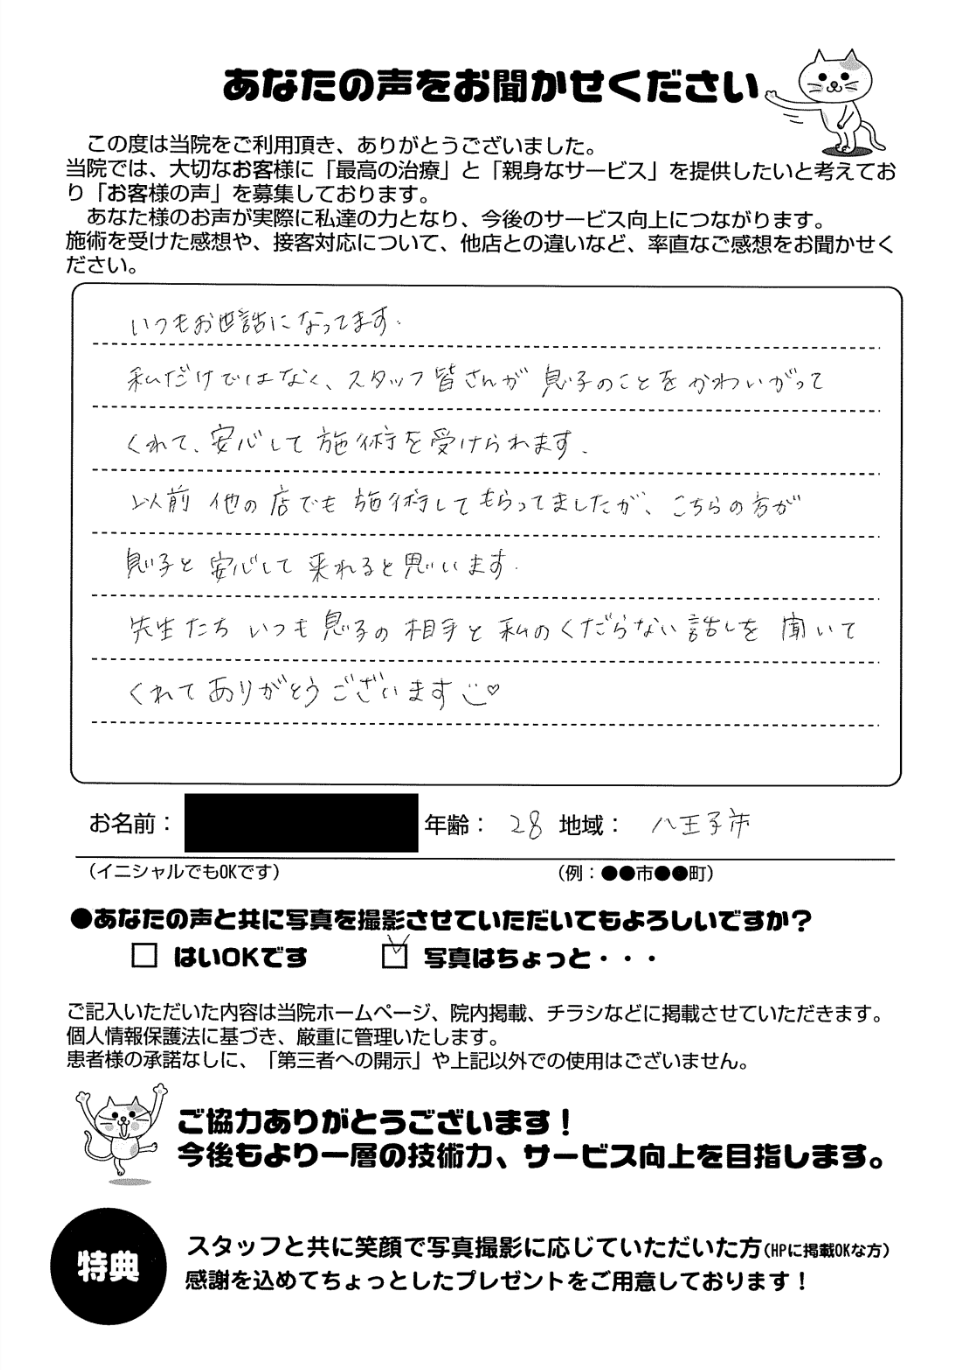 あなたの声をお聞かせください
この度は当院をご利用頂き、ありがとうございました。
当院では、大切なお客様に「最高の治療」と「親身なサービス」を提供したいと考えてお
り「お客様の声」を募集しております。
あなた様のお声が実際に私達の力となり、今後のサービス向上につながります。
施術を受けた感想や、接客対応について、他店との違いなど、率直なご感想をお聞かせく
ださい。
いつもお世話になってます.
私だけではなく、スタッフ皆さんが 息子のことをかわいがって
くれて、安心して施術を受けられます.
以前 他の店でも 施術してもらってましたが、こちらの方が
息子と安心して来れると思います.
先生たち いつも息子の相手と私のくだらない話しを聞いて
くれてありがとうございます♡
お名前： 年齢： 28 地域： 八王子市
（イニシャルでもOKです） （例：●●市●●町）
●あなたの声と共に写真を撮影させていただいてもよろしいですか？
□ はいOKです ☑ 写真はちょっと・・・
ご記入いただいた内容は当院ホームページ、院内掲載、チラシなどに掲載させていただきます。
個人情報保護法に基づき、厳重に管理いたします。
患者様の承諾なしに、「第三者への開示」や上記以外での使用はございません。
ご協力ありがとうございます！
今後もより一層の技術力、サービス向上を目指します。
特典
スタッフと共に笑顔で写真撮影に応じていただいた方（HPに掲載OKな方）
感謝を込めてちょっとしたプレゼントをご用意しております！